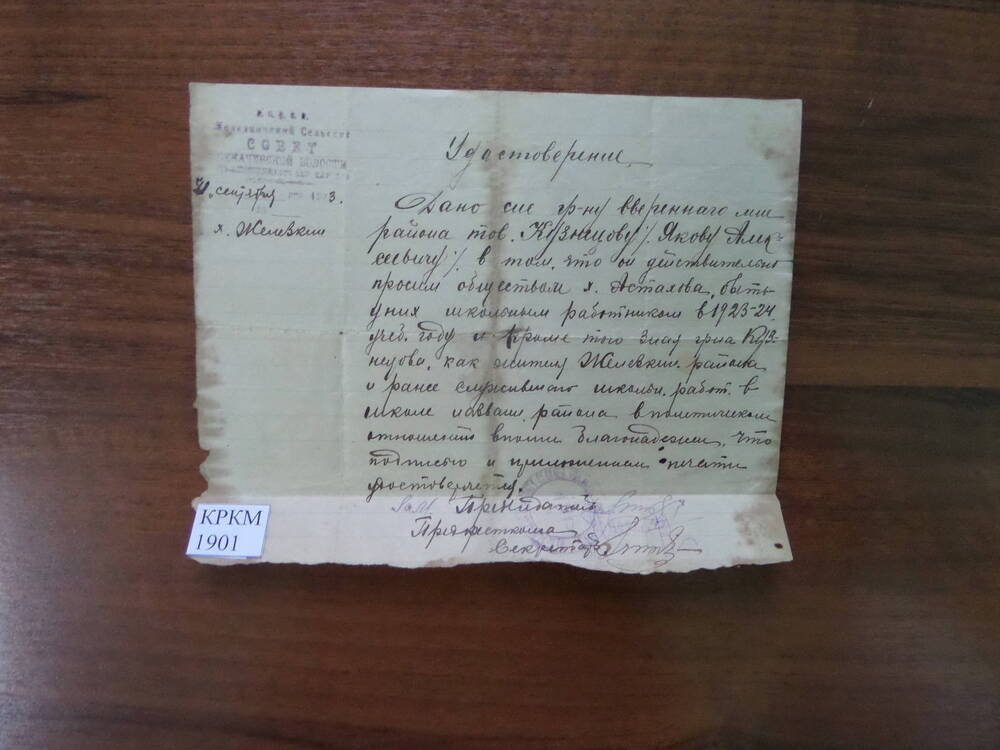 Р.С.Ф.С.Р.
Сельский
СОВЕТ
ВОЛОСТИ
21 сентября 1923.
х. Желвкин
Удостоверение
Дано сие гр-ну ввереннаго мне
района тов. Кузнецову /. Якову Алек-
сеевичу /. в том, что он действительно
просим обществом х. Астахова, быть
у них школьным работником в 1923-24.
учеб. году и кроме того зная гр-на Куз-
нецова, как жителя района
и ранее служившаго школьн. работ. в
школе назван. района в политическом
отношении вполне благонадежен, что
подписью и приложением печати
удостоверяется.
Зам. Председатель
Секретарь
КРКМ
1901